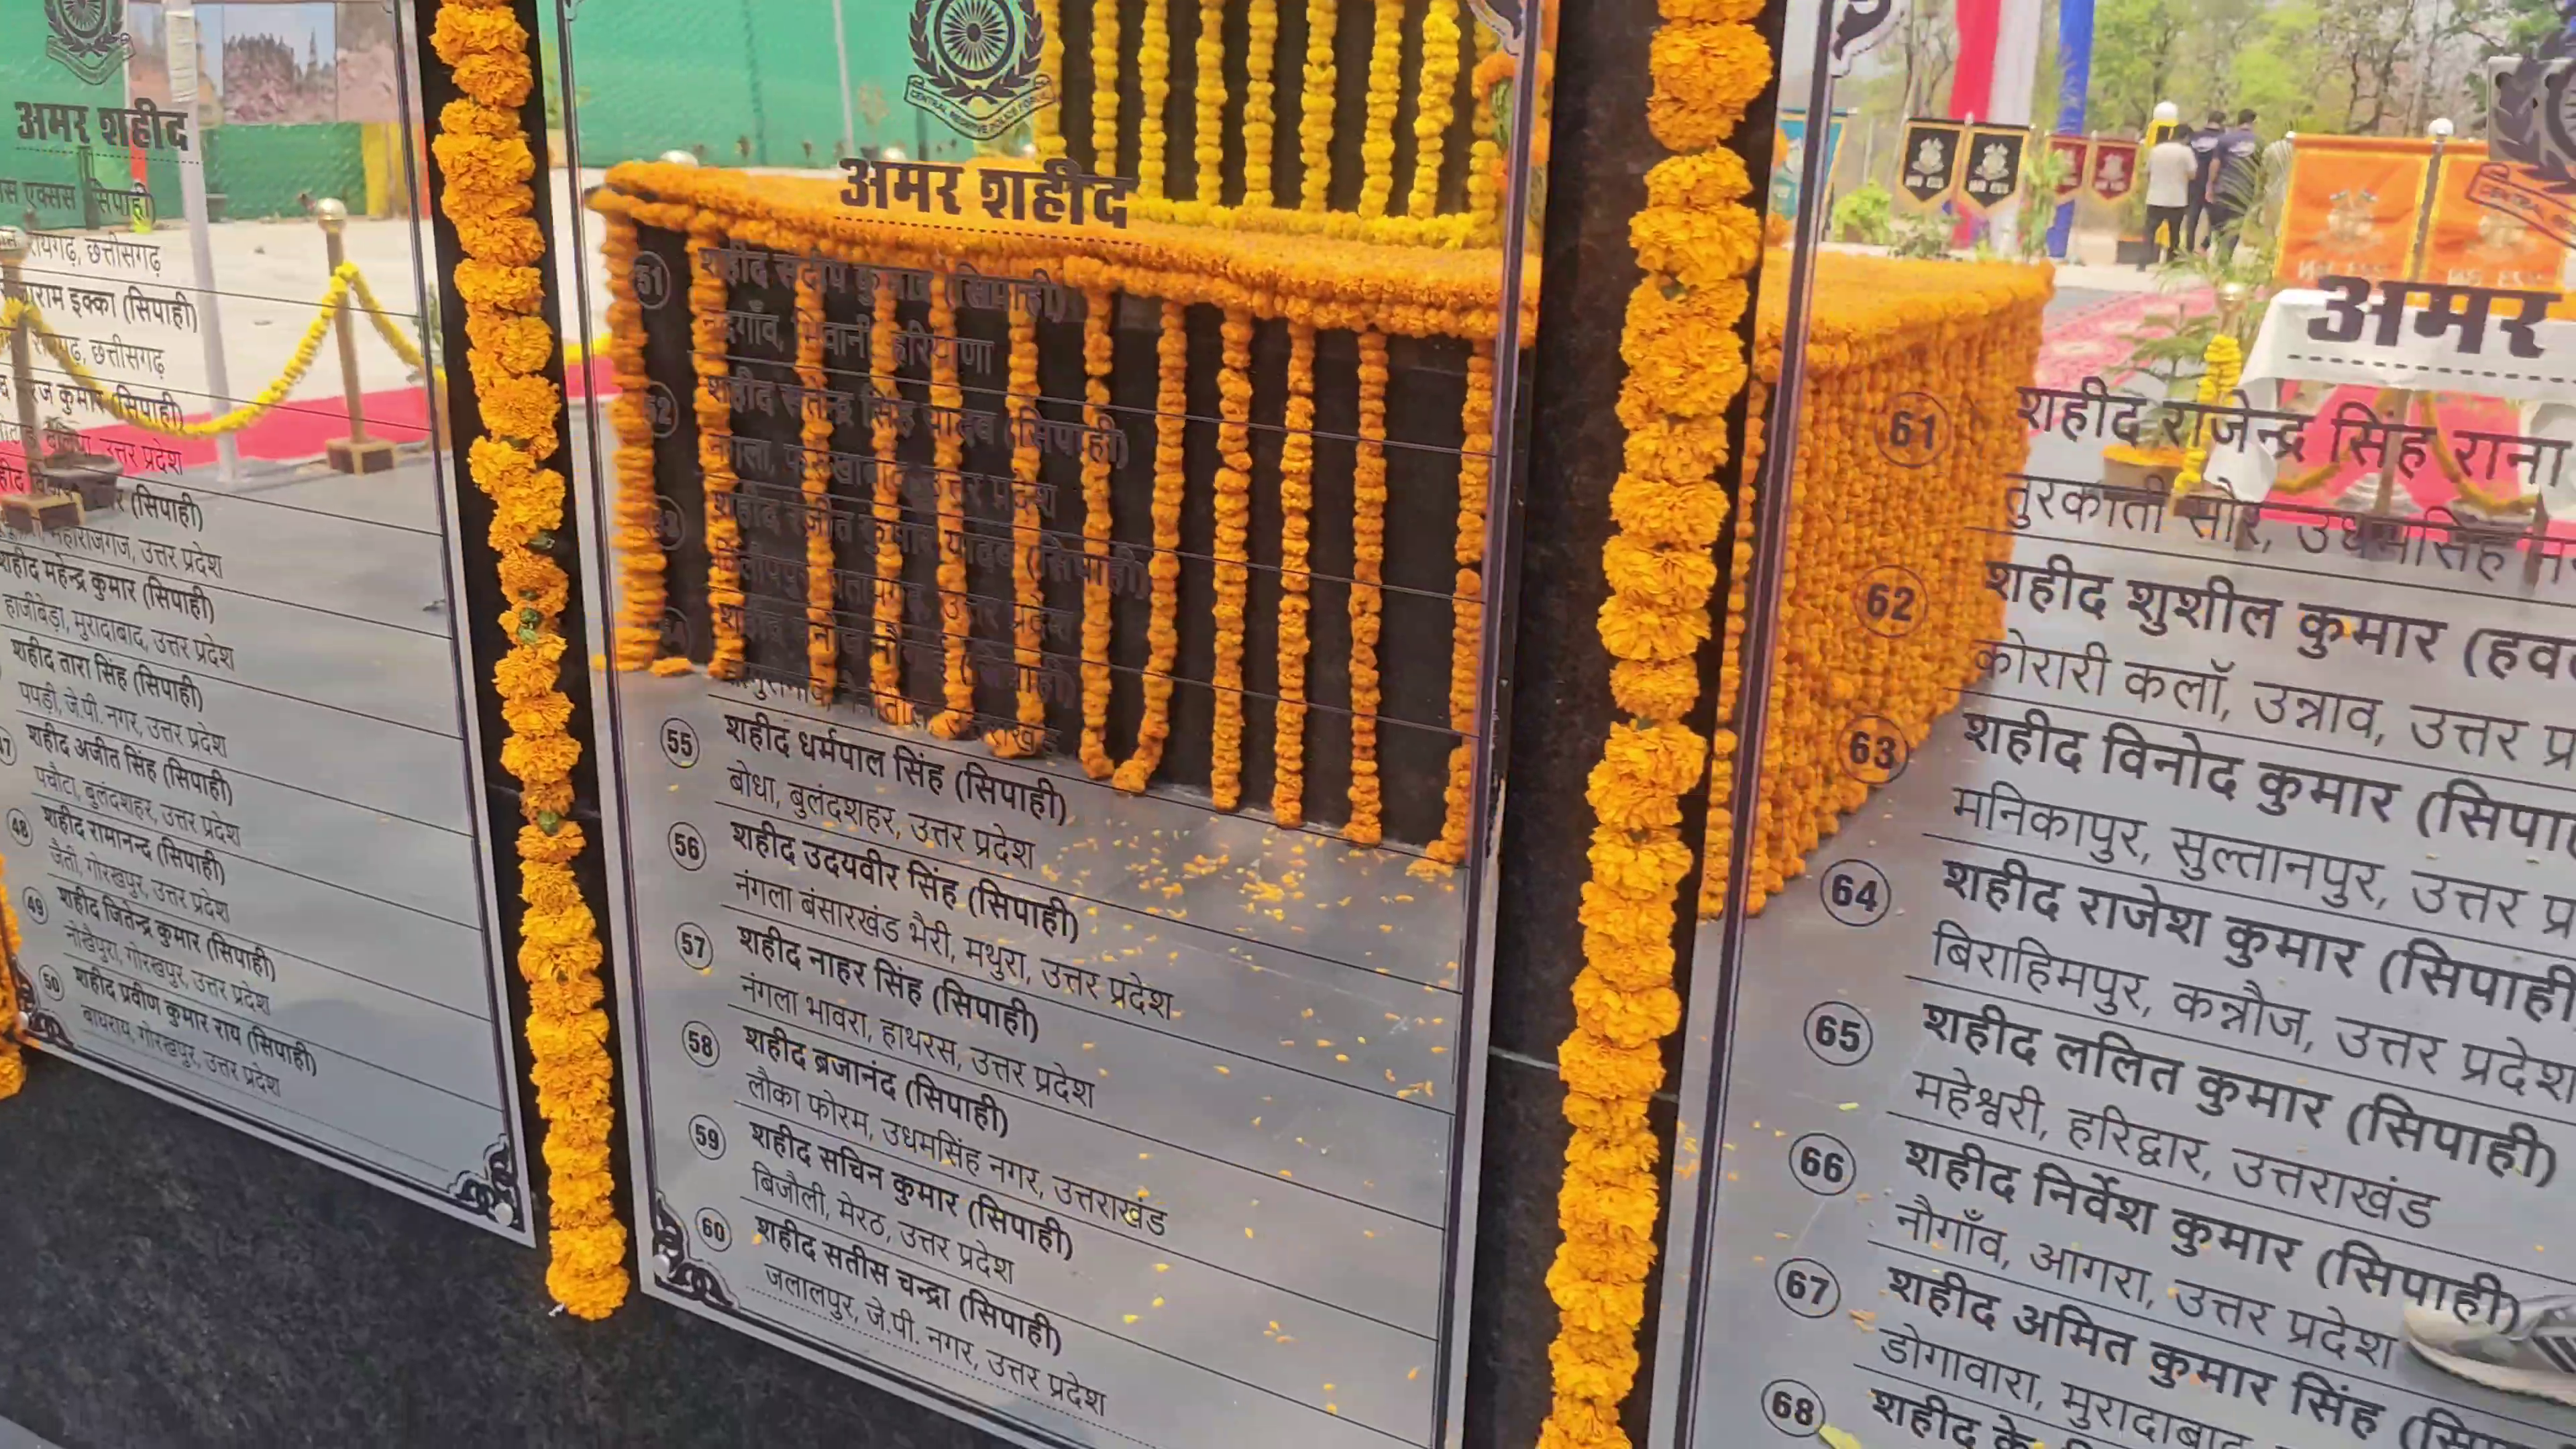 अमर शहीद
(सिपाही)
रायगढ़, छत्तीसगढ़
इक्का (सिपाही)
छत्तीसगढ़
कुमार (सिपाही)
उत्तर प्रदेश
(सिपाही)
महाराजगंज, उत्तर प्रदेश
शहीद महेन्द्र कुमार (सिपाही)
हाजीबेड़ा, मुरादाबाद, उत्तर प्रदेश
शहीद तारा सिंह (सिपाही)
पपड़ी, जे.पी. नगर, उत्तर प्रदेश
47 शहीद अजीत सिंह (सिपाही)
पचौटा, बुलंदशहर, उत्तर प्रदेश
48 शहीद रामानन्द (सिपाही)
जैती, गोरखपुर, उत्तर प्रदेश
49 शहीद जितेन्द्र कुमार (सिपाही)
नोखैपुरा, गोरखपुर, उत्तर प्रदेश
50 शहीद प्रवीण कुमार राय (सिपाही)
गोरखपुर, उत्तर प्रदेश
CENTRAL RESERVE POLICE FORCE
अमर शहीद
51 शहीद संदीप कुमार (सिपाही)
भिवानी, हरियाणा
52 शहीद सिंह यादव (सिपाही)
नगला, उत्तर प्रदेश
53 शहीद रंजीत कुमार यादव (सिपाही)
उत्तर प्रदेश
54 शहीद (सिपाही)
55 शहीद धर्मपाल सिंह (सिपाही)
बोधा, बुलंदशहर, उत्तर प्रदेश
56 शहीद उदयवीर सिंह (सिपाही)
नंगला बंसारखंड भैरी, मथुरा, उत्तर प्रदेश
57 शहीद नाहर सिंह (सिपाही)
नंगला भावरा, हाथरस, उत्तर प्रदेश
58 शहीद ब्रजानंद (सिपाही)
लौका फोरम, उधमसिंह नगर, उत्तराखंड
59 शहीद सचिन कुमार (सिपाही)
बिजौली, मेरठ, उत्तर प्रदेश
60 शहीद सतीस चन्द्रा (सिपाही)
जलालपुर, जे.पी. नगर, उत्तर प्रदेश
अमर
61 शहीद राजेन्द्र सिंह राना
तुरकाती सौर, उधमसिंह
62 शहीद शुशील कुमार (हव
कोरारी कलॉ, उन्नाव, उत्तर प्र
63 शहीद विनोद कुमार (सिपा
मनिकापुर, सुल्तानपुर, उत्तर प्र
64 शहीद राजेश कुमार (सिपाही
बिराहिमपुर, कन्नौज, उत्तर प्रदेश
65 शहीद ललित कुमार (सिपाही)
महेश्वरी, हरिद्वार, उत्तराखंड
66 शहीद निर्वेश कुमार (सिपाही)
नौगाँव, आगरा, उत्तर प्रदेश
67 शहीद अमित कुमार सिंह (सि
डोगावारा, मुरादाबाद
68 शहीद के